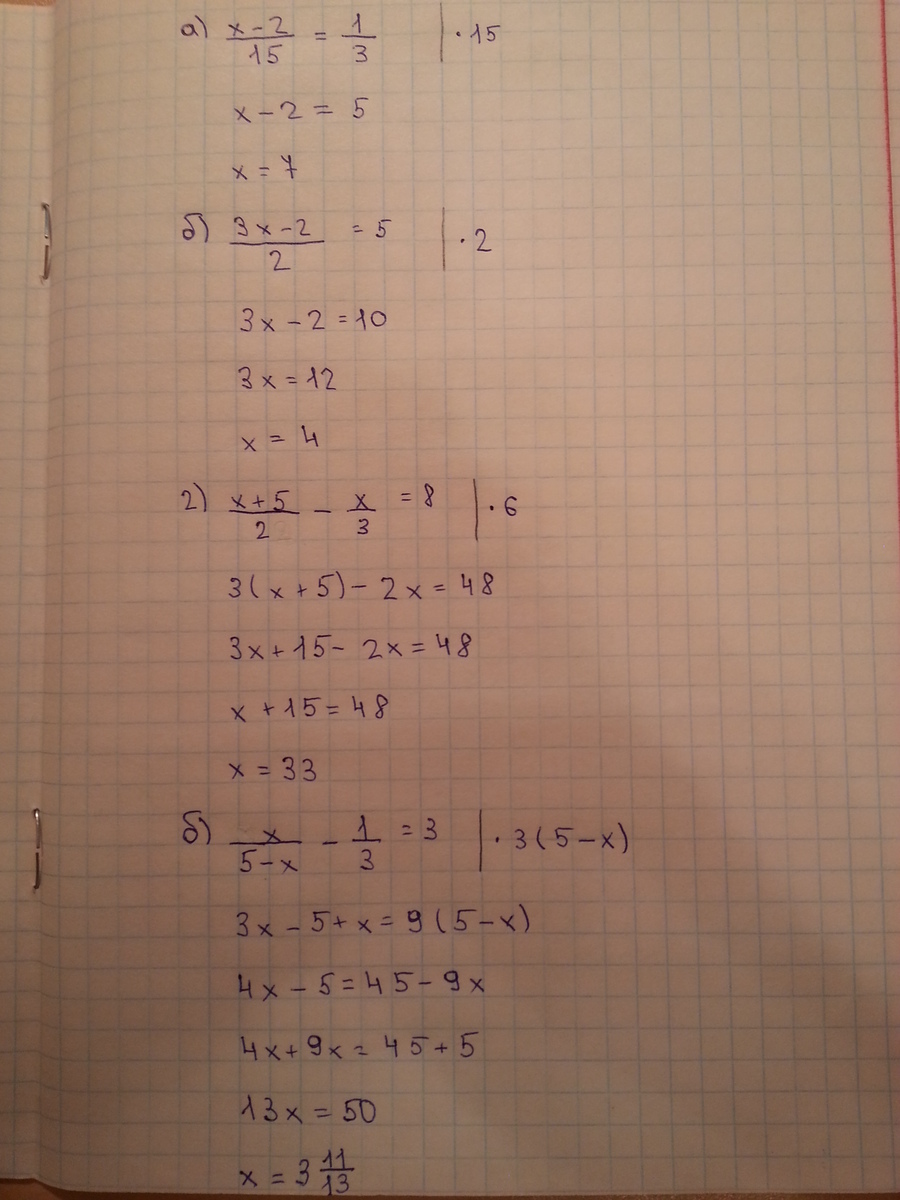 а) x-2/15 = 1/3 | · 15
x - 2 = 5
x = 7
б) 3x-2/2 = 5 | · 2
3x - 2 = 10
3x = 12
x = 4
2) x+5/2 - x/3 = 8 | · 6
3(x+5) - 2x = 48
3x + 15 - 2x = 48
x + 15 = 48
x = 33
б) x/5-x - 1/3 = 3 | · 3(5-x)
3x - 5 + x = 9(5-x)
4x - 5 = 45 - 9x
4x + 9x = 45 + 5
13x = 50
x = 3 11/13